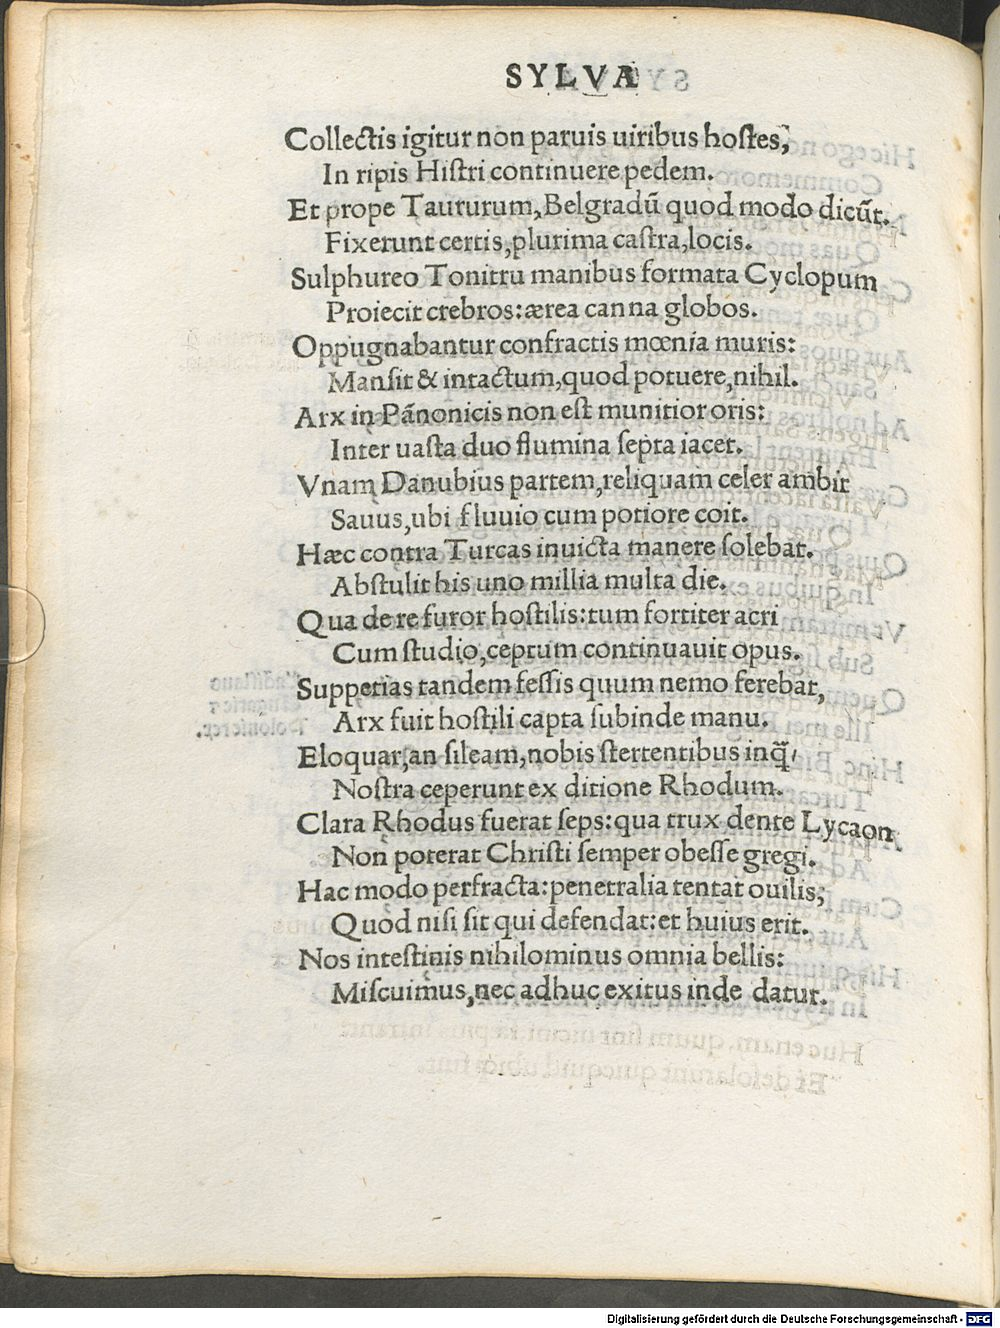 SYLVA
Collectis igitur non paruis uiribus hostes,
In ripis Histri continuere pedem.
Et prope Taururum, Belgradū quod modo dicūt.
Fixerunt certis, plurima castra, locis.
Sulphureo Tonitru manibus formata Cyclopum
Proiecit crebros: ærea canna globos.
Oppugnabantur confractis mœnia muris:
Mansit & intactum, quod potuere, nihil.
Arx in Pānonicis non est munitior oris:
Inter uasta duo flumina septa iacet.
Vnam Danubius partem, reliquam celer ambit
Sauus, ubi fluuio cum potiore coit.
Hæc contra Turcas inuicta manere solebat.
Abstulit his uno millia multa die.
Qua de re furor hostilis: tum fortiter acri
Cum studio, ceptum continuauit opus.
Suppetias tandem fessis quum nemo ferebat,
Arx fuit hostili capta subinde manu.
Eloquar, an sileam, nobis stertentibus inq̃,
Nostra ceperunt ex ditione Rhodum.
Clara Rhodus fuerat seps: qua trux dente Lycaon
Non poterat Christi semper obesse gregi.
Hac modo perfracta: penetralia tentat ouilis,
Quod nisi sit qui defendat: et huius erit.
Nos intestinis nihilominus omnia bellis:
Miscuimus, nec adhuc exitus inde datur.
Digitalisierung gefördert durch die Deutsche Forschungsgemeinschaft - DFG